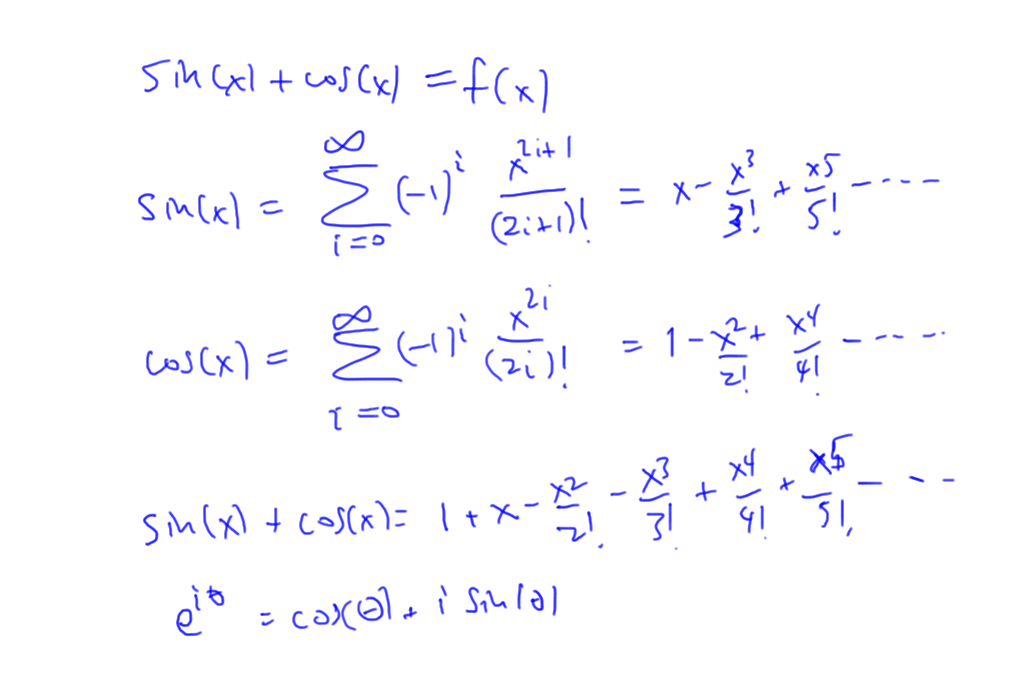 sin(x) + cos(x) = f(x)
sin(x) = ∑_{i=0}^{∞} (-1)^i x^{2i+1}/(2i+1)! = x - x^3/3! + x^5/5! - ----
cos(x) = ∑_{i=0}^{∞} (-1)^i x^{2i}/(2i)! = 1 - x^2/2! + x^4/4! - ----
sin(x) + cos(x) = 1 + x - x^2/2! - x^3/3! + x^4/4! + x^5/5! - --
e^{iθ} = cos(θ) + i sin(θ)